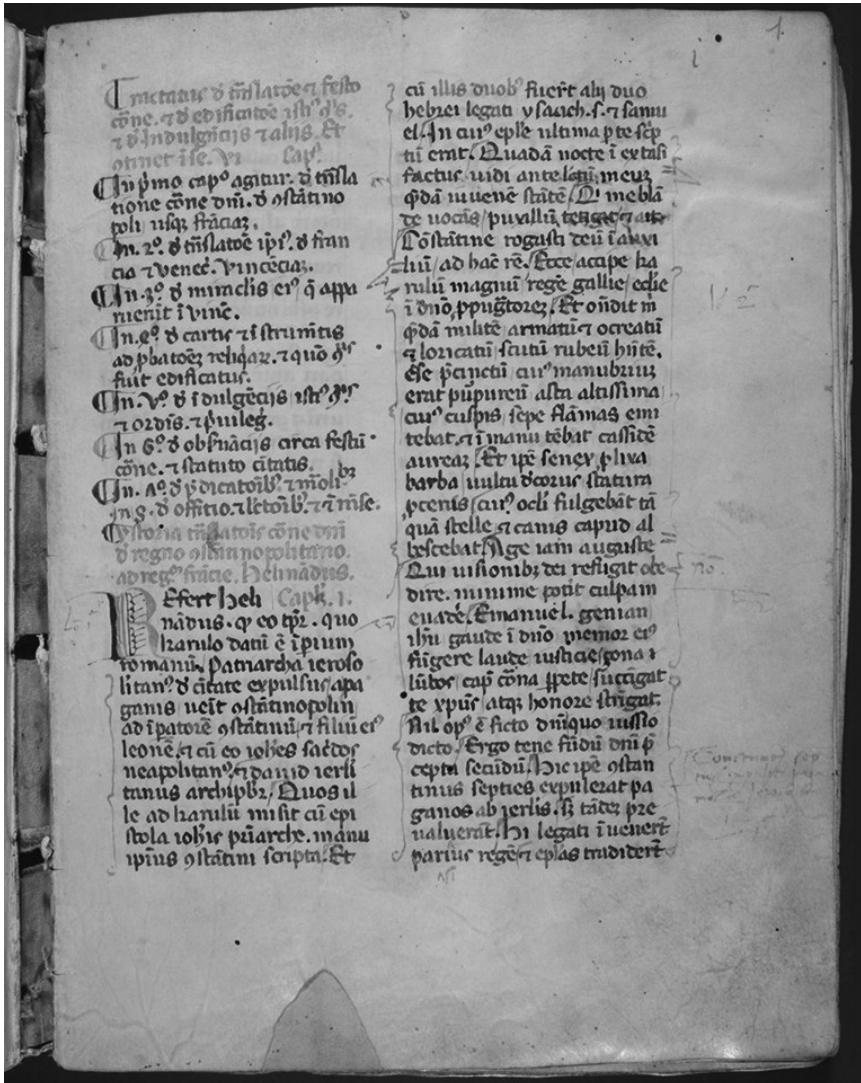 Tractatus d̄ trāslatōe ⁊ festo
cōne. ⁊ d̄ edificatōe istiꝰ ꝯꝰ.
⁊ d̄ īdulgēcijs ⁊ alijs. Et
ꝯtinet ī se. VI Capᵃ.
¶ In p̄mo capᵒ agitur. d̄ trāsla
tione cōne dn̄i. d̄ ꝯstātino
poli usqꝫ frāciaꝫ.
¶ In. 2ᵒ. d̄ trāslatōe ip̄iꝰ. d̄ fran
cia ⁊ veneꝯ. Vincēciaꝫ.
¶ In. 3ᵒ. d̄ miraclis eiꝰ q̄ appa
ruerūt ī vinc̄.
¶ In. 4ᵒ. d̄ cartis ⁊ ī strumētis
ad ꝓbatōeꝫ reliq̄aꝝ. ⁊ quō
fuit edificatus.
¶ In. Vᵒ. d̄ īdulgēcijs istiꝰ
⁊ ordīs. ⁊ p̄uileḡ.
¶ In 6ᵒ. d̄ obſuācijs circa festū
cōne. ⁊ statuto citatis.
¶ In. ᴧᵒ. d̄ p̄dicatoībꝫ ⁊ īmoli br
In. 8. d̄ offitio. ⁊ lc̄toībꝫ. ⁊ ī mīse.
¶ Ystoria trāslatōis cōne dn̄i
d̄ regno ꝯstātinopolitano.
ad regē frācie. Helinādus.
REfert heli Capl̄. 1.
nādus. ꝙ eo tp̄r. quo
karulo datū ē īperium
romanū. Patriarcha ieroso
litanꝰ d̄ citate expulsus apa
ganis ueīt ꝯstātinopolin
ad īpatorē ꝯstātinū ⁊ filiū eiꝰ
leonē. ⁊ cū eo ioh̄es sac̄dos
neapolitanꝰ. ⁊ dauid ierl̄i
tanus archip̄br. Quos il
le ad karulū misit cū epi
stola ioh̄is pr̄iarche. manu
ip̄ius ꝯstātini scripta. Et
cū illis duobꝰ fuer̄t alij duo
hebrei legati ysaach. s. ⁊ samu
el. In cuiꝰ ep̄le ultima p̄te sc̄p
tū erat. Quadā nocte ī extasi
factus uidi ante lectū meuꝫ
q̄dā iuuenē stātē. Qi me blā
de uocās, puxillū tetigat ⁊ ait
Cōstātine rogasti deū ī auxi
liū ad hāc rē. Ecce accipe ka
rulū magnū regē gallie. ecl̄ie
ī dn̄o ꝓpugtoreꝫ. Et on̄dit m̄
q̄dā militē armatū ⁊ ocreatū
⁊ loricatū scutū rubeū hn̄tē.
Ēse p̄cinctū cuiꝰ manubriuꝫ
erat purpureū asta altissima
cuiꝰ cuspis sepe flāmas emi
tebat. ⁊ ī manu tēbat cassidē
aureaꝫ. Et ip̄e senex ꝓlixa
barba uultu dec̄orus statura
ꝓcenis cuiꝰ ocl̄i fulgebāt tā
quā stelle ⁊ canis capud al
bescebat. Age iam auguste
Qui uisionibꝫ dei refugit obe
dire. minime potit culpam
euad̄e. Emanuel. genian
ih̄u gaude ī dn̄o memor eiꝰ
fūgere laude iusticie zona ⁊
lūbos cap̄ cōna ꝓpete succīgat
te xp̄us atqꝫ honore strīgat.
Nil opꝰ ē ficto dn̄iquo iusso
dicto. Ergo tene fūdū dn̄i p̄
cepta secūdū. Hic ip̄e ꝯstan
tinus septies expulerat pa
ganos ab ierl̄is. sꝫ tādeꝫ pre
ualuerāt. Hi legati īuenert̄
parius regē ⁊ ep̄las tradidert̄